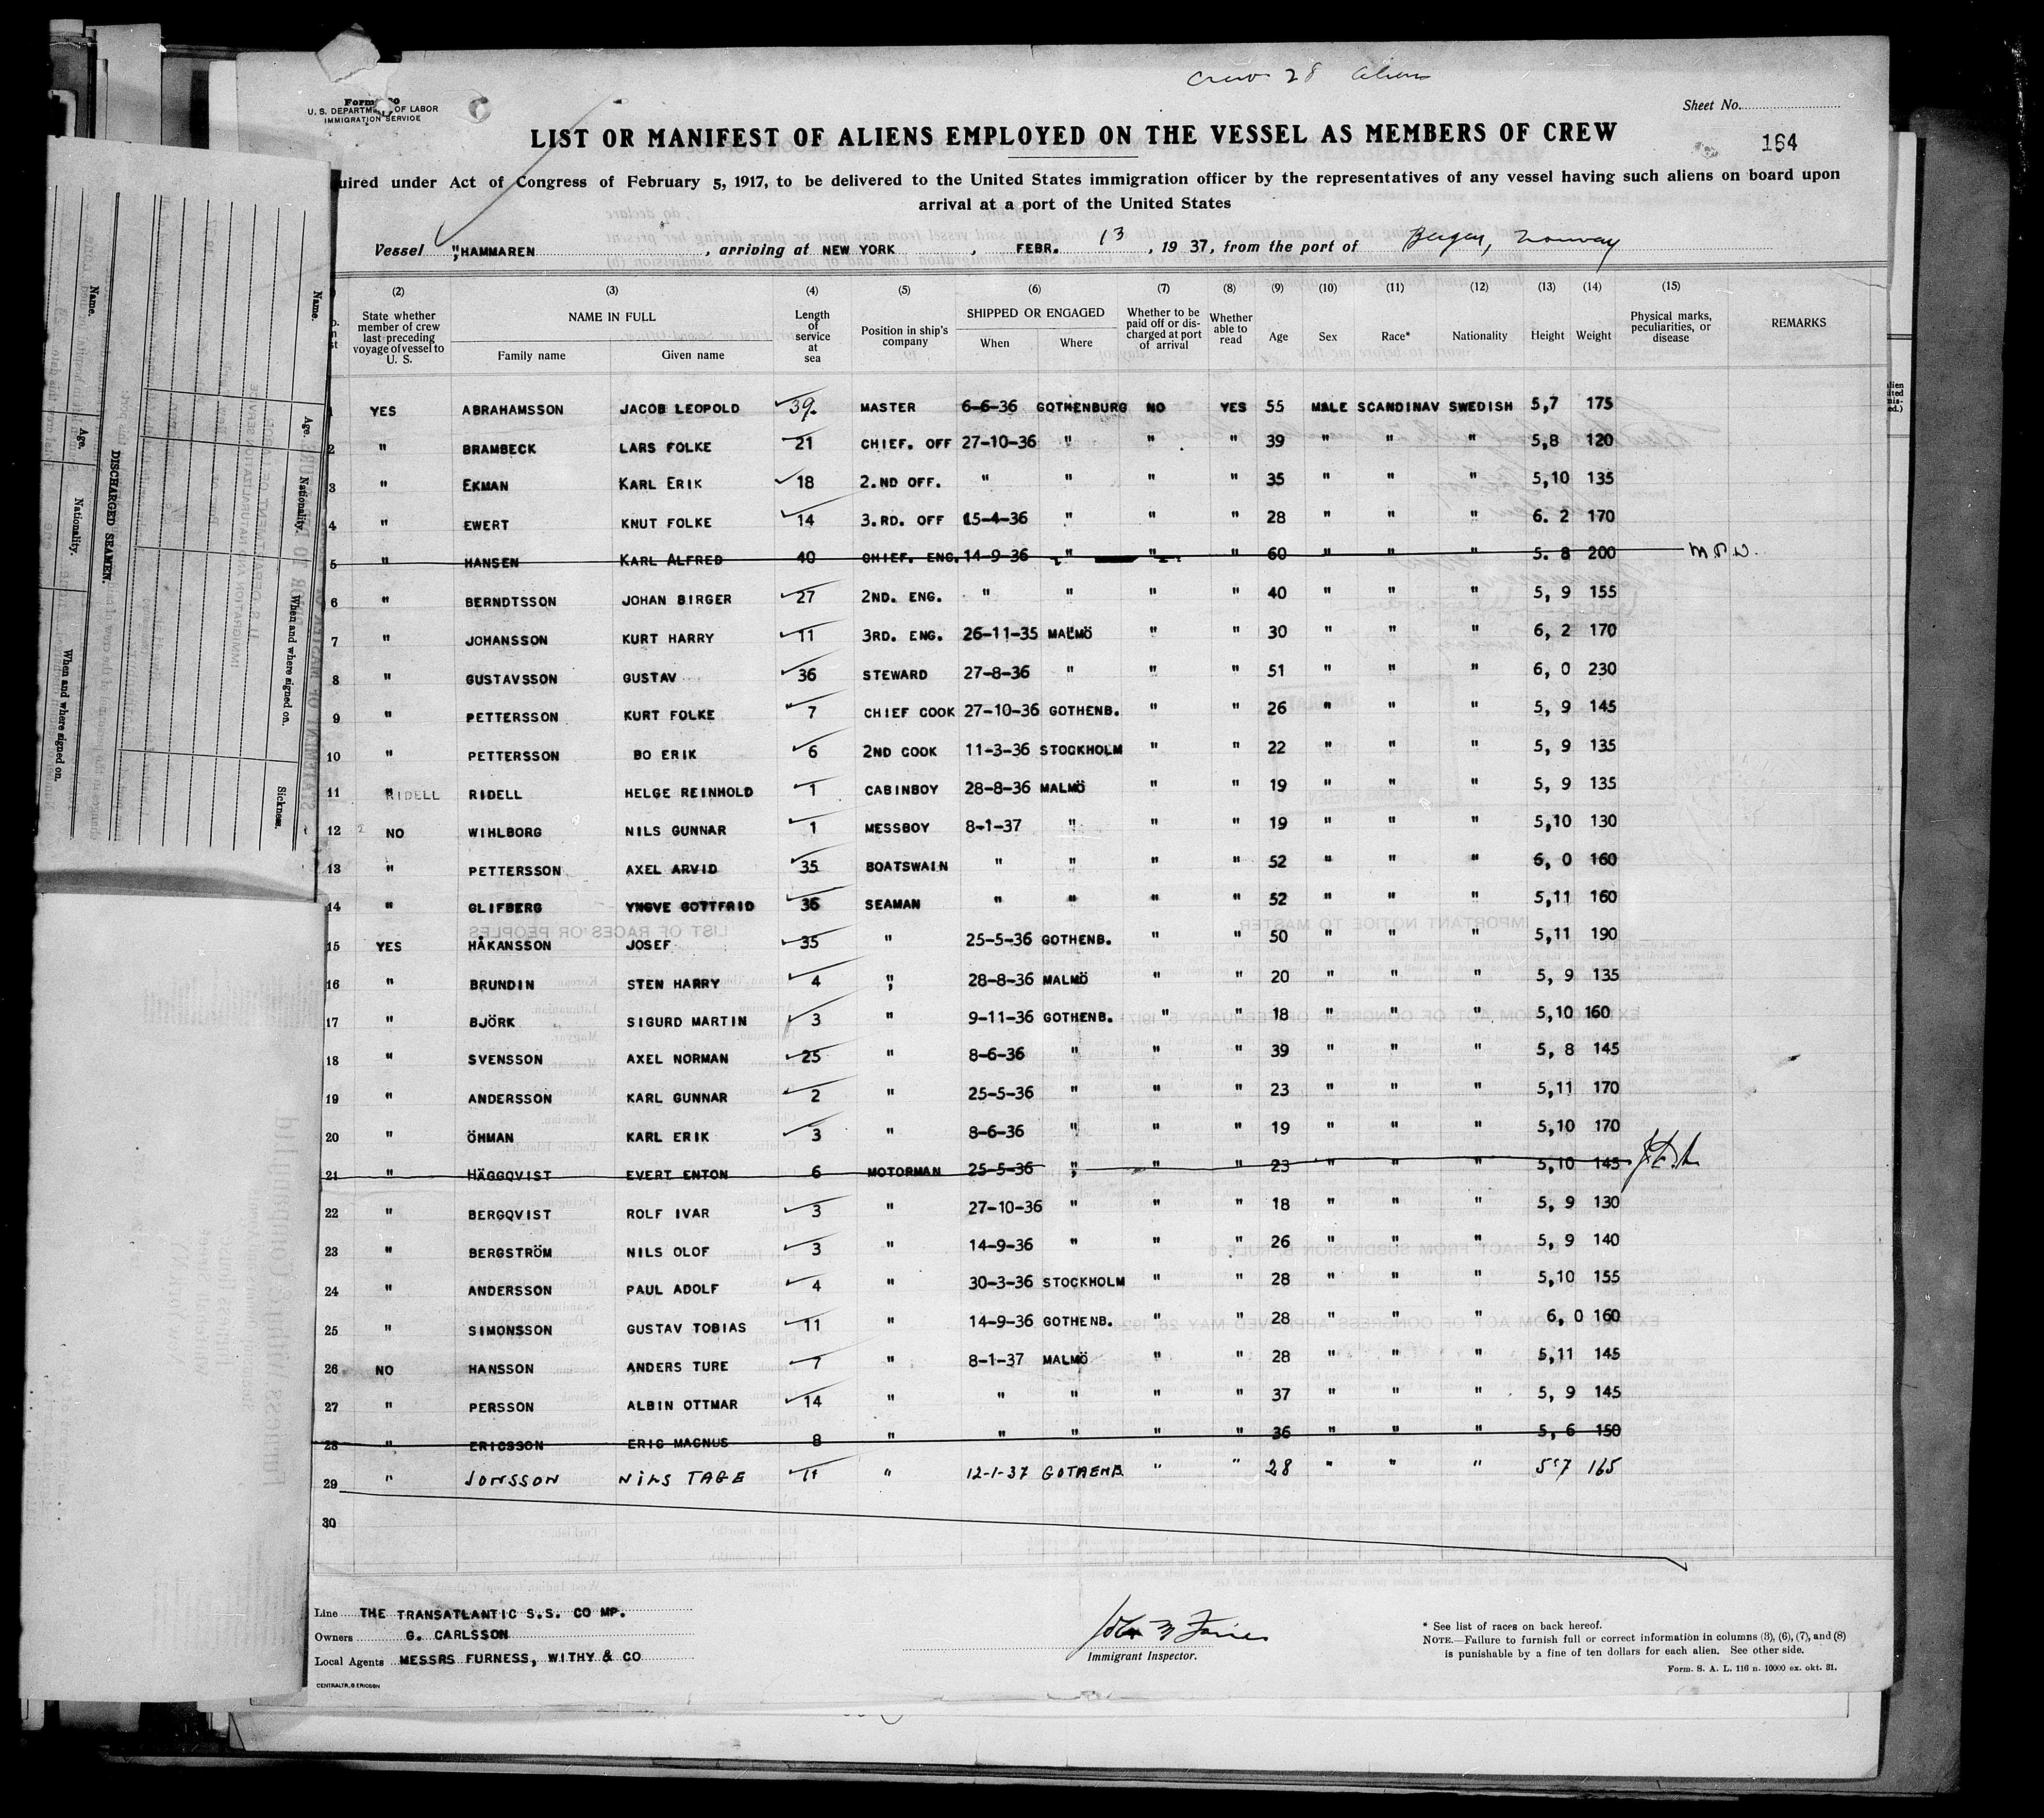 Crew 28 aliens
U. S. DEPARTMENT OF LABOR
IMMIGRATION SERVICE
Sheet No.
LIST OR MANIFEST OF ALIENS EMPLOYED ON THE VESSEL AS MEMBERS OF CREW
164
uired under Act of Congress of February 5, 1917, to be delivered to the United States immigration officer by the representatives of any vessel having such aliens on board upon
arrival at a port of the United States
Vessel "HAMMAREN , arriving at NEW YORK , FEBR. 13 , 19 37, from the port of Bergen, Norway
(2) (3) (4) (5) (6) (7) (8) (9) (10) (11) (12) (13) (14) (15)
State whether member of crew last preceding voyage of vessel to U. S. NAME IN FULL Family name Given name Length of service at sea Position in ship's company SHIPPED OR ENGAGED When Where Whether to be paid off or discharged at port of arrival Whether able to read Age Sex Race* Nationality Height Weight Physical marks, peculiarities, or disease REMARKS
1 YES ABRAHAMSSON JACOB LEOPOLD 39. MASTER 6-6-36 GOTHENBURG NO YES 55 MALE SCANDINAV SWEDISH 5,7 175
2 " BRAMBECK LARS FOLKE 21 CHIEF. OFF 27-10-36 " " " 39 " " " 5,8 120
3 " EKMAN KARL ERIK 18 2.ND OFF. " " " " 35 " " " 5,10 135
4 " EWERT KNUT FOLKE 14 3.RD. OFF 15-4-36 " " " 28 " " " 6. 2 170
5 " HANSEN KARL ALFRED 40 CHIEF. ENG. 14-9-36 " " " 60 " " " 5. 8 200
6 " BERNDTSSON JOHAN BIRGER 27 2ND. ENG. " " " " 40 " " " 5, 9 155
7 " JOHANSSON KURT HARRY 11 3RD. ENG. 26-11-35 MALMÖ " " 30 " " " 6, 2 170
8 " GUSTAVSSON GUSTAV 36 STEWARD 27-8-36 " " " 51 " " " 6, 0 230
9 " PETTERSSON KURT FOLKE 7 CHIEF COOK 27-10-36 GOTHENB. " " 26 " " " 5, 9 145
10 " PETTERSSON BO ERIK 6 2ND COOK 11-3-36 STOCKHOLM " " 22 " " " 5, 9 135
11 " RIDELL RIDELL HELGE REINHOLD 1 CABINBOY 28-8-36 MALMÖ " " 19 " " " 5, 9 135
12 NO WIHLBORG NILS GUNNAR 1 MESSBOY 8-1-37 " " " 19 " " " 5,10 130
13 " PETTERSSON AXEL ARVID 35 BOATSWAIN " " " " 52 " " " 6, 0 160
14 " GLIFBERG YNGVE GOTTFRID 36 SEAMAN " " " " 52 " " " 5,11 160
15 YES HÅKANSSON JOSEF 35 " 25-5-36 GOTHENB. " " 50 " " " 5,11 190
16 " BRUNDIN STEN HARRY 4 " 28-8-36 MALMÖ " " 20 " " " 5, 9 135
17 " BJÖRK SIGURD MARTIN 3 " 9-11-36 GOTHENB. " " 18 " " " 5,10 160
18 " SVENSSON AXEL NORMAN 25 " 8-6-36 " " " 39 " " " 5, 8 145
19 " ANDERSSON KARL GUNNAR 2 " 25-5-36 " " " 23 " " " 5,11 170
20 " ÖHMAN KARL ERIK 3 " 8-6-36 " " " 19 " " " 5,10 170
21 " HÄGGQVIST EVERT ENTON 6 MOTORMAN 25-5-36 " " " 23 " " " 5,10 145
22 " BERGQVIST ROLF IVAR 3 " 27-10-36 " " " 18 " " " 5, 9 130
23 " BERGSTRÖM NILS OLOF 3 " 14-9-36 " " " 26 " " " 5, 9 140
24 " ANDERSSON PAUL ADOLF 4 " 30-3-36 STOCKHOLM " " 28 " " " 5,10 155
25 " SIMONSSON GUSTAV TOBIAS 11 " 14-9-36 GOTHENB. " " 28 " " " 6, 0 160
26 NO HANSSON ANDERS TURE 7 " 8-1-37 MALMÖ " " 28 " " " 5,11 145
27 " PERSSON ALBIN OTTMAR 14 " " " " " 37 " " " 5, 9 145
28 " ERICSSON ERIC MAGNUS 8 " " " " " 36 " " " 5, 6 150
29 " JONSSON NILS TAGE 11 " 12-1-37 GOTHENB " " 28 " " " 5'7 165
30
Line THE TRANSATLANTIC S.S. CO MP.
Owners G. CARLSSON
Local Agents MESSRS FURNESS, WITHY & CO
CENTRALTR, G. ERICSON
Immigrant Inspector.
* See list of races on back hereof.
NOTE.—Failure to furnish full or correct information in columns (3), (6), (7), and (8)
is punishable by a fine of ten dollars for each alien. See other side.
Form. S. A. L. 116 n. 10000 ex. okt. 31.
DISCHARGED SEAMEN.
Name. Age. Nationality. When and where signed on.
Name. Age. Nationality. When and where signed on. Sickness.